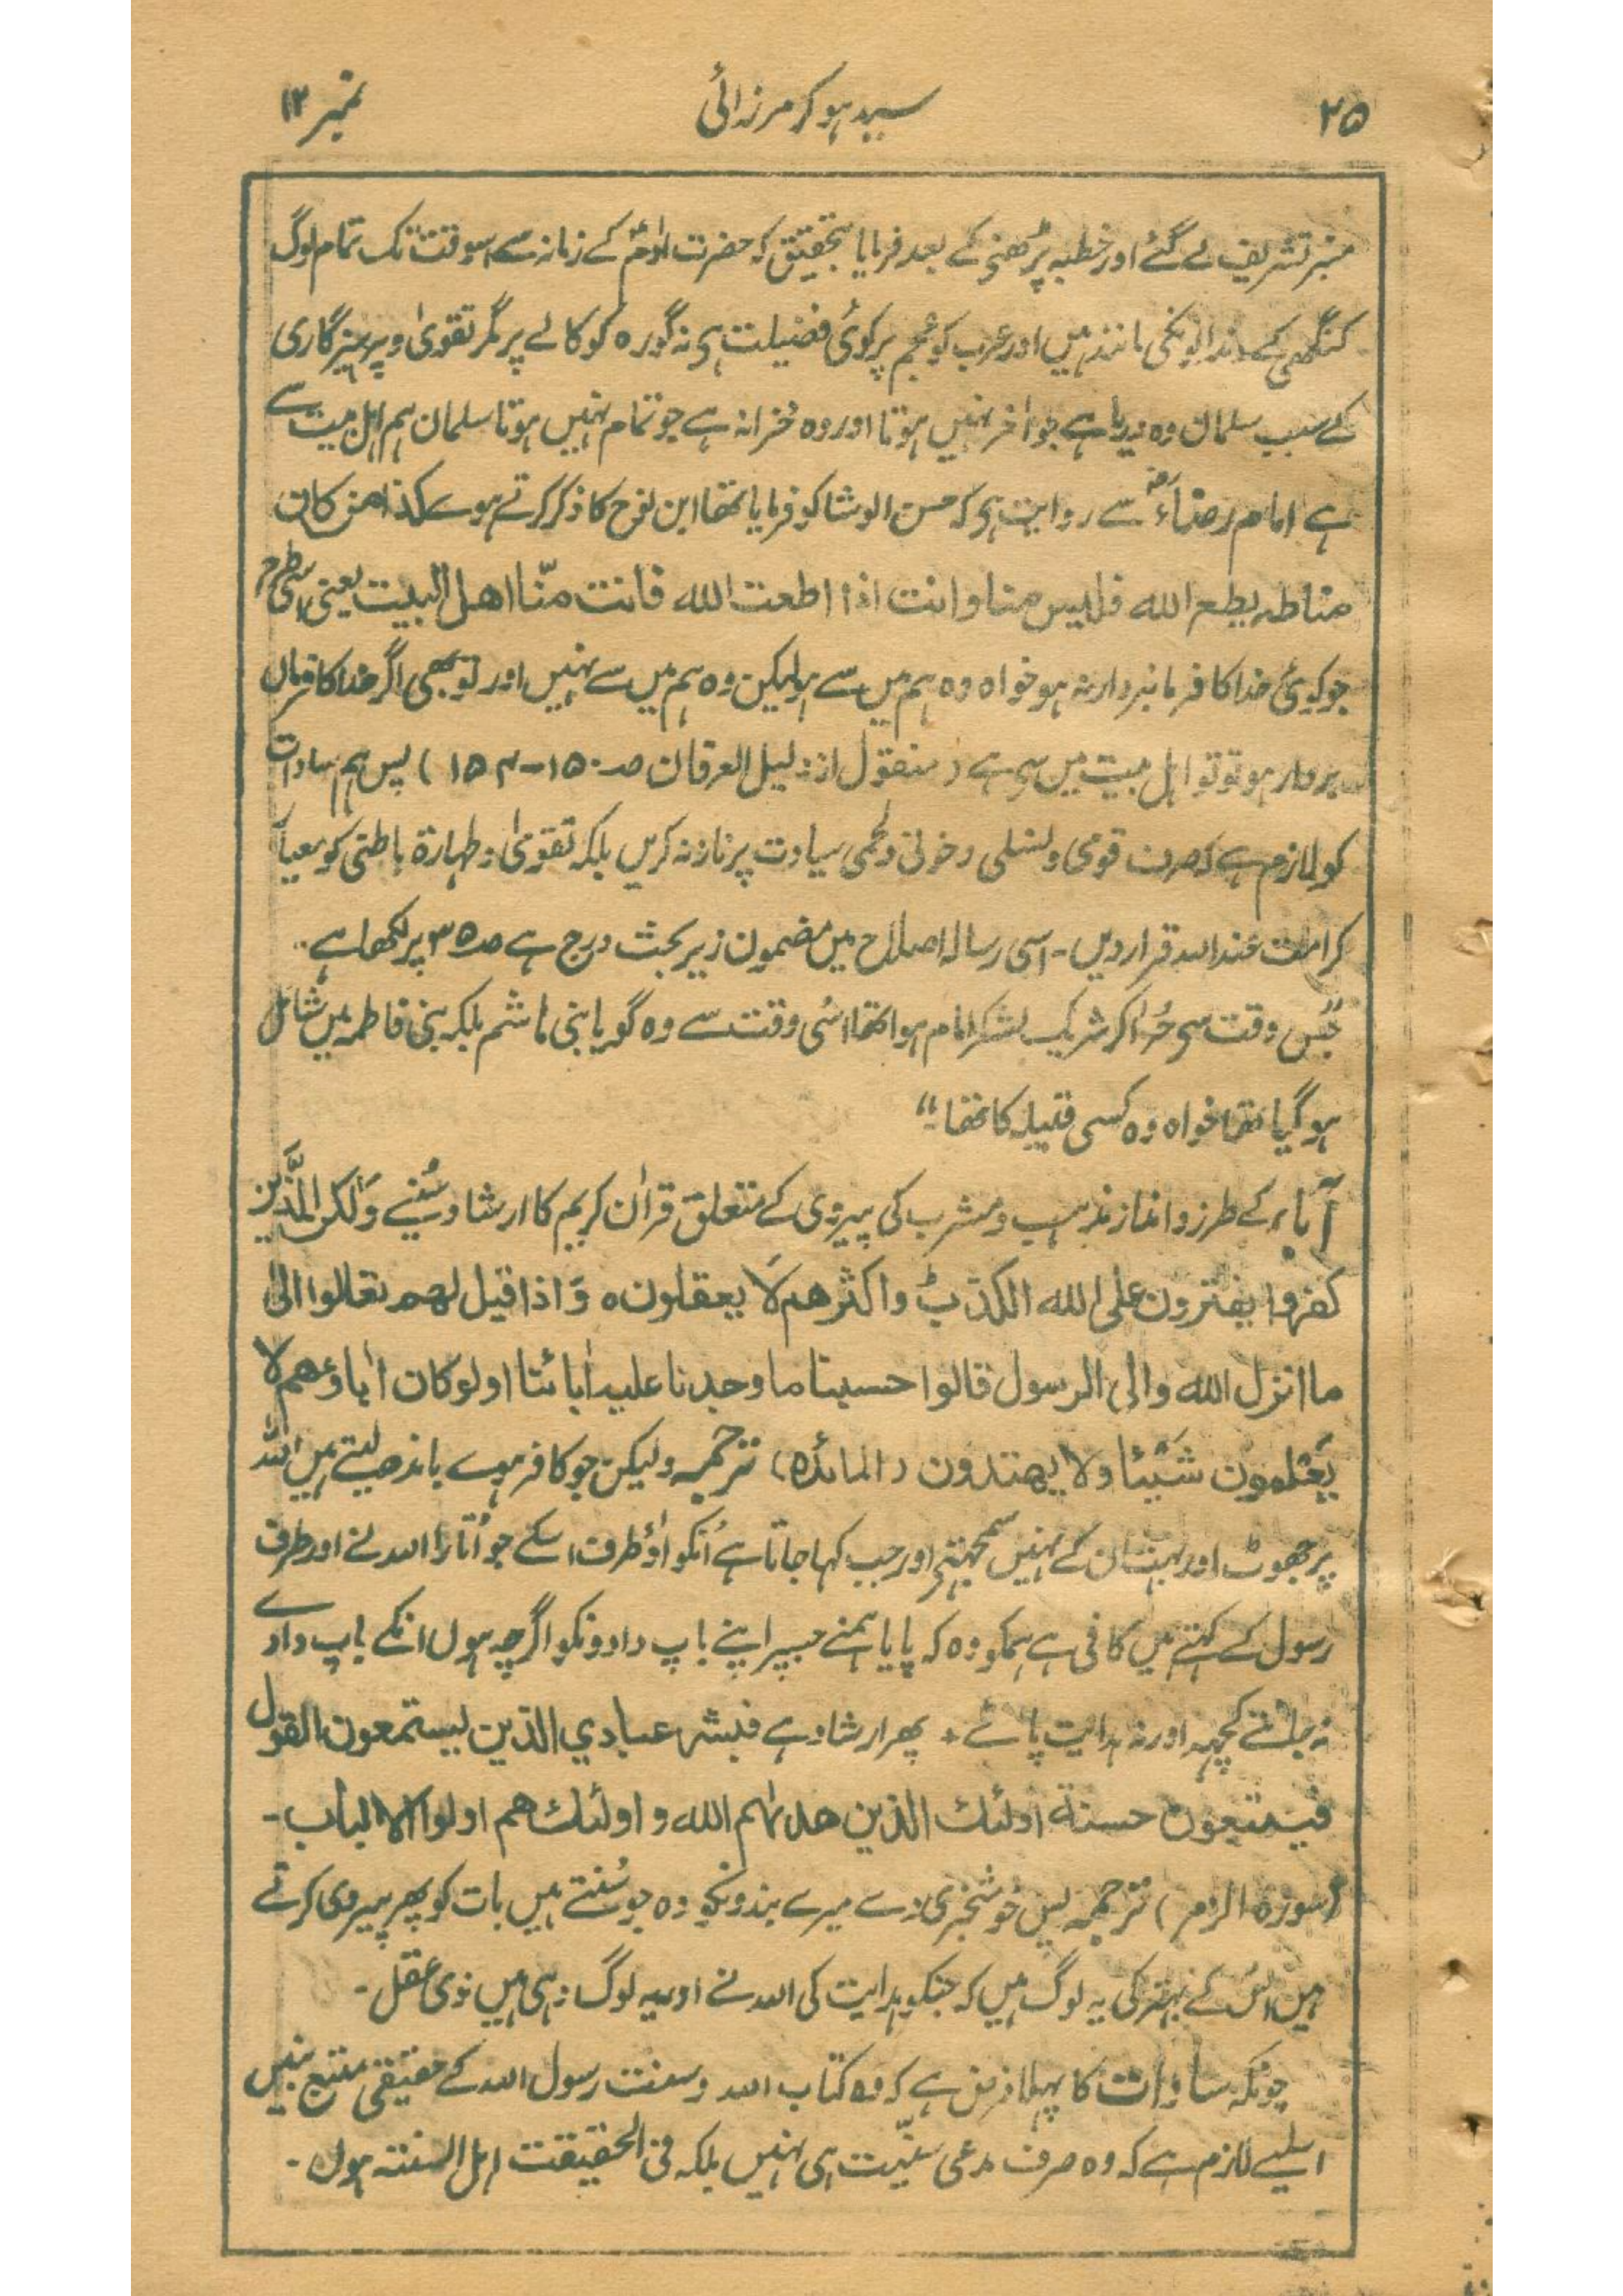 ۲۵ سید ہو کر مرزائی نمبر ۱۲
منبر تشریف لے گئے اور خطبہ پڑھنے کے بعد فرمایا بتحقیق کہ حضرت اٰدمؑ کے زمانہ سے اسوقت تک تمام لوگ
کنگھی کے دندانونکی مانند ہیں اور عرب کو عجم پر کوئی فضیلت ہی نہ گورہ کو کالے پر مگر تقویٰ و پرہیزگاری
کے سبب سلمان وہ دریا ہے جو اٰخر نہیں ہوتا اور وہ خزانہ ہے جو تمام نہیں ہوتا سلمان ہم اہل بیت سے
ہے امام رضاءؑ سے روایت ہی کہ حسن الوشا کو فرمایا تھا ابن نوح کا ذکر کرتے ہوے کذا من کان
منا طہ یطع الله فلیس منا وانت اذا اطعت الله فانت منّا اهل البیت یعنی اسی طرح
جو کوئی خدا کا فرمانبردار نہ ہو خواہ وہ ہم میں سے ہو لیکن وہ ہم میں سے نہیں اور تو بھی اگر خدا کا فرمان
بردار ہو تو تو اہل بیت میں سی ہے (منقول از دلیل العرفان صـ ۱۵۰-۱۵۴) پس ہم سادات
کو لازم ہے کہ صرف قومی و نسلی و خونی و لحمی سیادت پر ناز نہ کریں بلکہ تقویٰ و طہارۃ باطنی کو معیار
کرامت عند اللہ قرار دیں - اسی رسالہ اصلاح میں مضمون زیر بحث درج ہے صـ ۳۵ پر لکھا ہے -
"جس وقت سی حُر اٰکر شریک لشکر امام ہوا تھا اسُی وقت سے وہ گویا بنی ہاشم بلکہ بنی فاطمہ میں شامل
ہو گیا تھا خواہ وہ کسی قبیلہ کا تھا -"
آباء کے طرز و انداز مذہب و مشرب کی پیروی کے متعلق قراٰن کریم کا ارشاد سُنیے وَلٰکن الّذین
کفروا یفترون علی الله الکذبؕ واکثرهم لَا یعقلون ہ وَاذا قیل لهم تعالوا الیٰ
ما انزل الله والی الرسول قالوا حسبنا ما وجدنا علیه اٰبائنا اولوکان اٰباؤهم لا
یَعْلَمُون شَیْئا ولا یهتدون (المائدہ) ترجمہ ولیکن جو کافر ہوے باندھ لیتے ہیں اللہ
پر جھوٹ اور بہت ان کے نہیں سمجھتے اور جب کہا جاتا ہے اُنکو اٰؤ طرف اسکے جو اُتارا اللہ نے اور طرف
رسول کے کہتے ہیں کافی ہے ہمکو وہ کہ پایا ہمنے جسپر اپنے باپ دادونکو اگرچہ ہوں انکے باپ دادے
نہ جانتے کچھہ اور نہ ہدایت پائے + پھر ارشاد ہے فبشر عبادي الذین یستمعون القول
فیتبعون حسنة اولئك الذین هداٰهم الله و اولئك هم اولوا الالباب -
(سورہ الزمر) ترجمہ پس خوشخبری دے میرے بندونکو وہ جو سُنتے ہیں بات کو پھر پیروی کرتے
ہیں اسُ کے بہتر کی یہ لوگ ہیں کہ جنکو ہدایت کی اللہ نے اور یہ لوگ وہی ہیں ذوی عقل -
چونکہ سادات کا پہلا فرض ہے کہ وہ کتاب اللہ و سنت رسول اللہ کے حقیقی متبع بنیں
اسلیے لازم ہے کہ وہ صرف مدعی سنّیت ہی نہیں بلکہ فی الحقیقت اہل السنتہ ہوں -